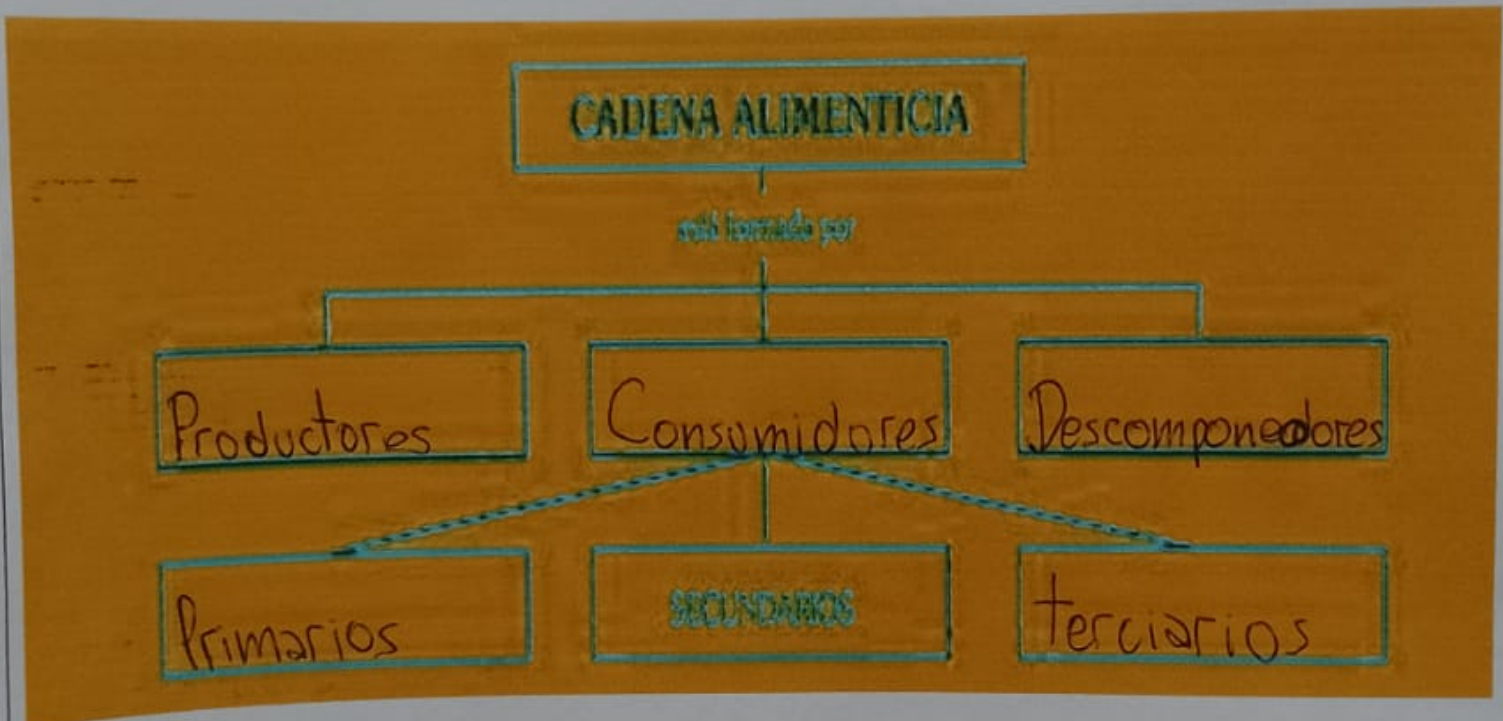 CADENA ALIMENTICIA
está formada por
Productores Consumidores Descomponedores
Primarios SECUNDARIOS terciarios